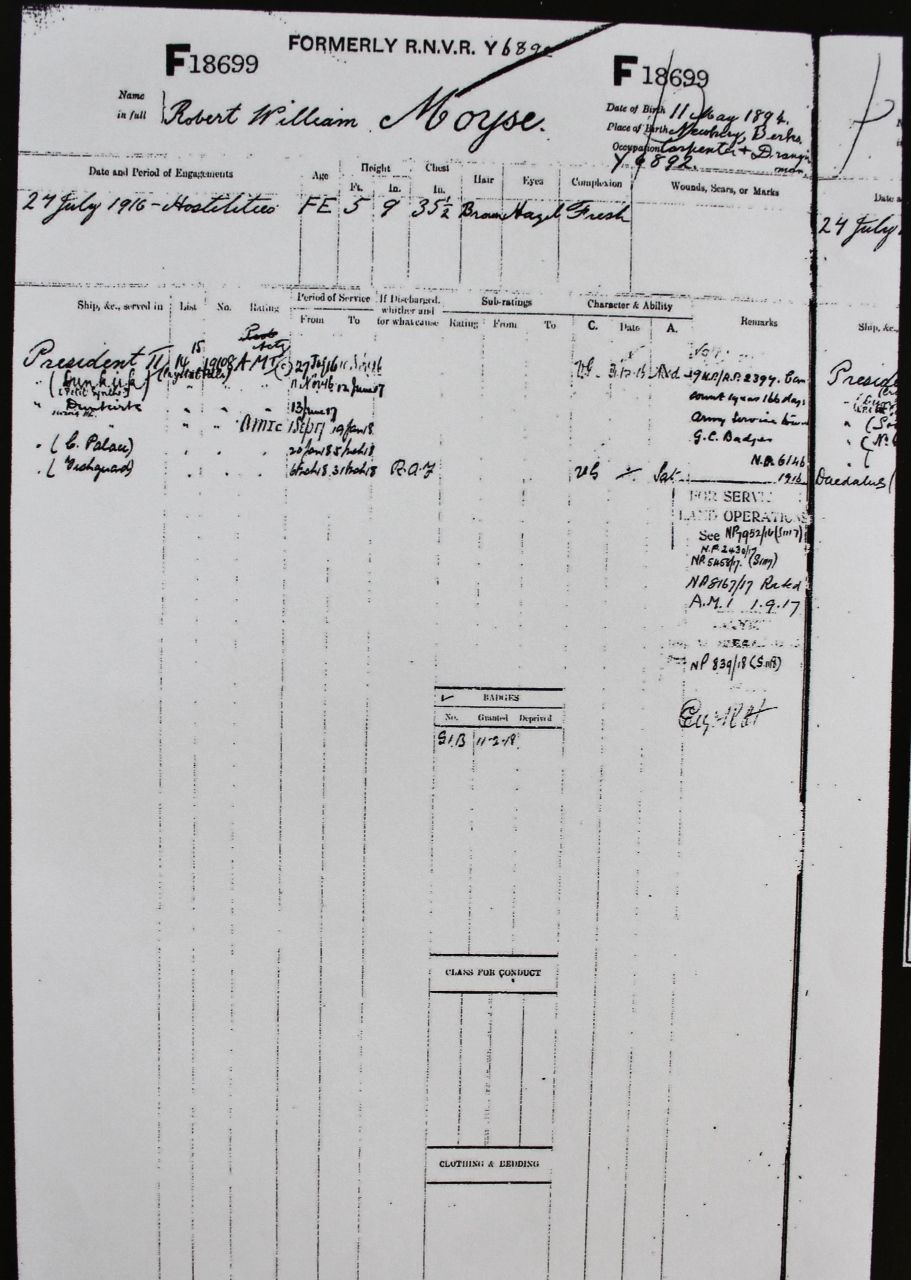 FORMERLY R.N.V.R. Y6892
F18699
F18699
Name in full Robert William Moyse.
Date of Birth 11 May 1894.
Place of Birth Newbury, Berks.
Occupation Carpenter & Draughtsman
Y6892.
Date and Period of Engagements Age Height Ft. In. Chest In. Hair Eyes Complexion Wounds, Scars, or Marks
27 July 1916 - Hostilities FE 5 9 35½ Brown Hazel Fresh
24 July
Ship, &c., served in List No. Rating Period of Service From To If Discharged, whither and for what cause Sub-ratings Rating From To Character & Ability C. Date A. Remarks
Ship, &c.
President II 14 15 A.M.I. VG 31-12-16 N.P./R.P. 2397. Can
(Dunkirk) 11 Nov 16 12 June 17 count 1 year 166 days
" Dunkirk 13 June 17 Army Service
" " " " AMIC 19 Jan 18 G.C. Badges
" (C. Palace) 20 Jan 18 5 Feb 18 N.P. 6146
" (Fishguard) 6 Feb 18 31 Mch 18 R.A.F VG Sat. 1916
Daedalus (
FOR SERVICE
LAND OPERATIONS
See NP7952/16 (Sm7)
N.P. 2430/17
NP5458/17. (Sm7)
NP8167/17 Rated
A.M.I 1.9.17
NP 839/18 (Sm8)
✓ BADGES
No. Granted Deprived
G1B 11-2-18
CLASS FOR CONDUCT
CLOTHING & BEDDING